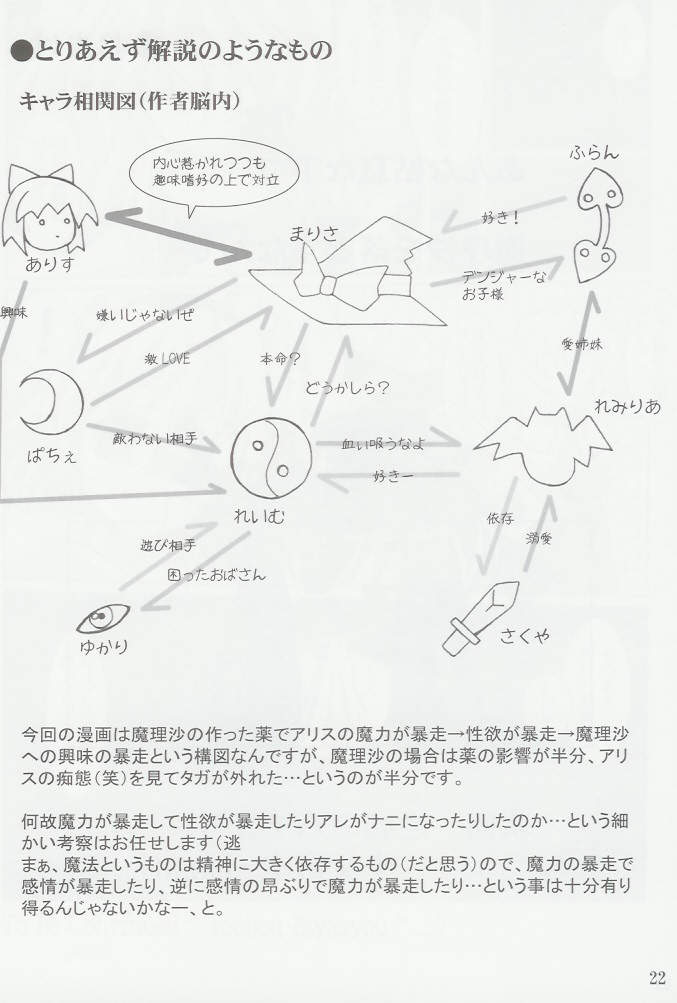 ●とりあえず解説のようなもの
キャラ相関図(作者脳内)
内心惹かれつつも
趣味嗜好の上で対立
ふらん
まりさ
好き！
ありす
デンジャーな
お子様
興味
嫌いじゃないぜ
激LOVE
本命？
どうかしら？
愛姉妹
れみりあ
ぱちぇ
敵わない相手
血ぃ吸うなよ
好きー
れいむ
依存
溺愛
遊び相手
困ったおばさん
ゆかり
さくや
今回の漫画は魔理沙の作った薬でアリスの魔力が暴走→性欲が暴走→魔理沙
への興味の暴走という構図なんですが、魔理沙の場合は薬の影響が半分、アリ
スの痴態(笑)を見てタガが外れた…というのが半分です。
何故魔力が暴走して性欲が暴走したりアレがナニになったりしたのか…という細
かい考察はお任せします(逃
まぁ、魔法というものは精神に大きく依存するもの(だと思う)ので、魔力の暴走で
感情が暴走したり、逆に感情の昂ぶりで魔力が暴走したり…という事は十分有り
得るんじゃないかなー、と。
22